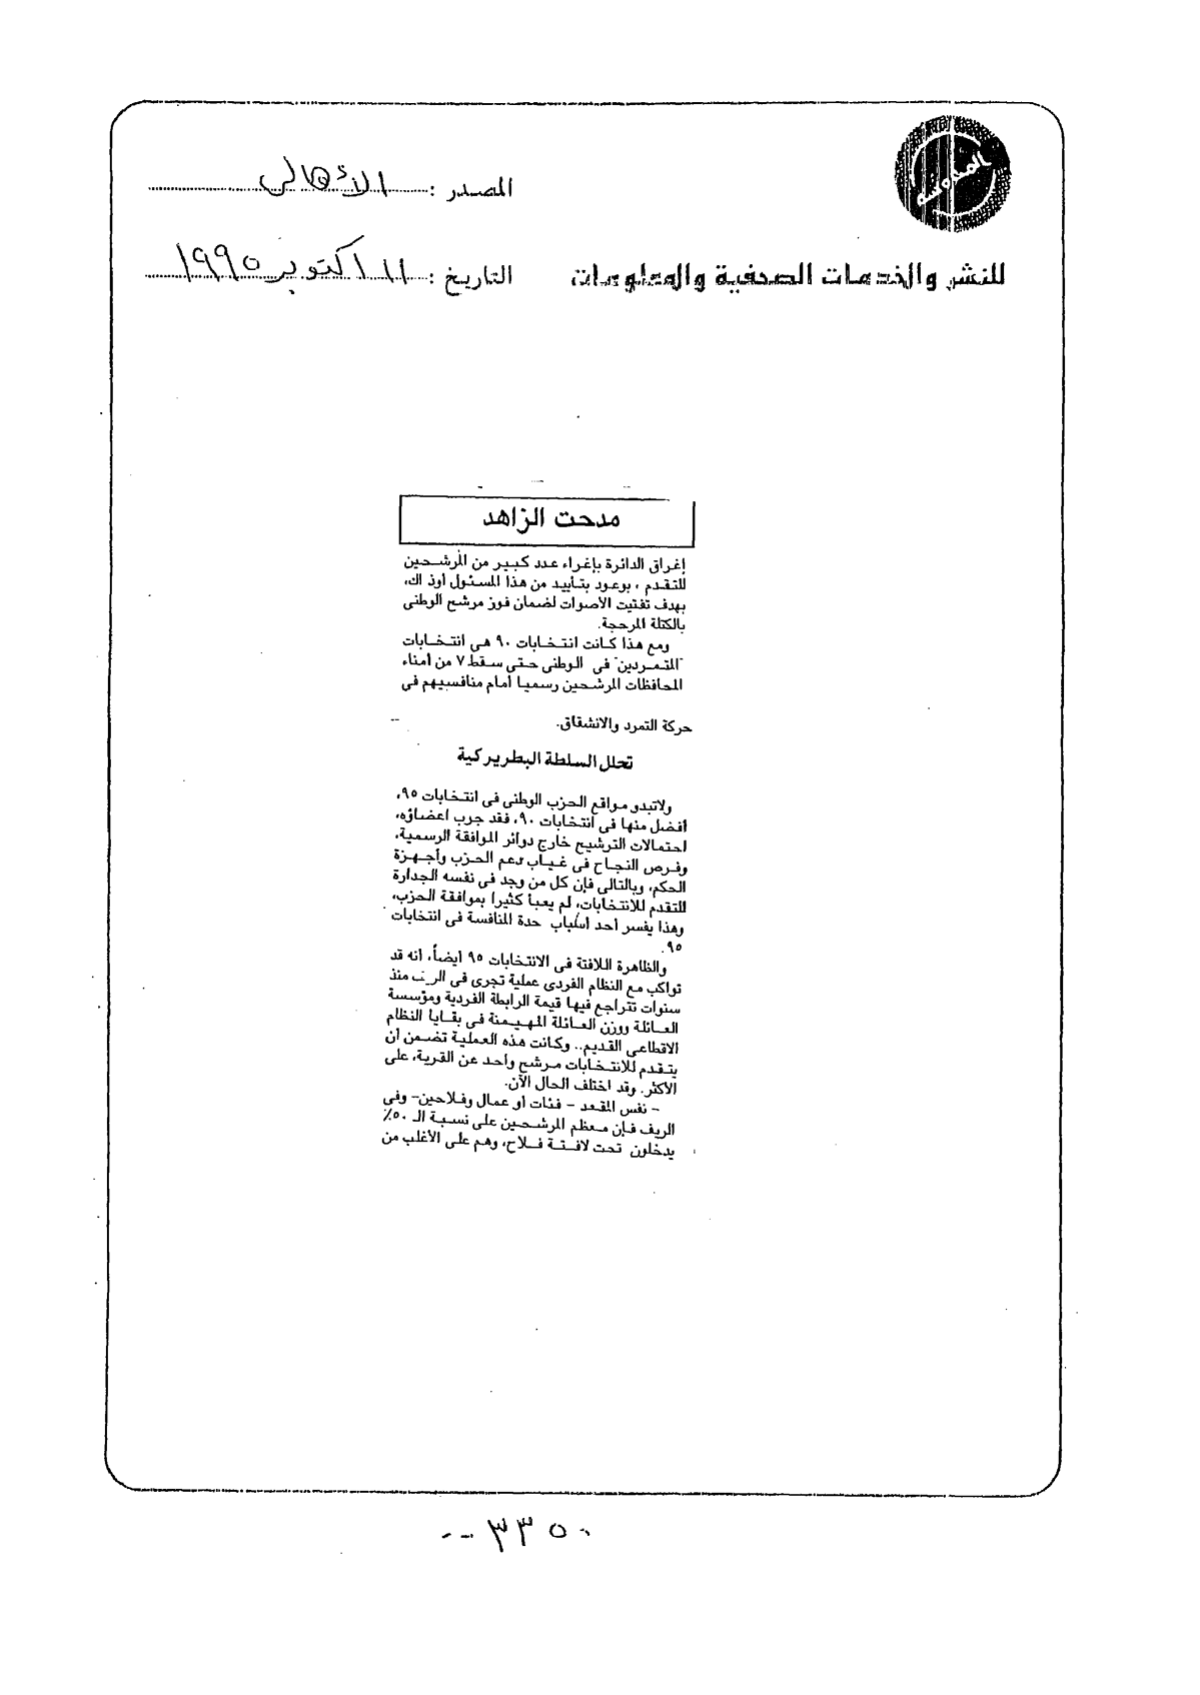 المصدر : الأهالى
للنشر والخدمات الصحفية والمعلومات
التاريخ : ١١ اكتوبر ١٩٩٥
مدحت الزاهد
إغراق الدائرة بإغراء عدد كبير من المرشحين
للتقدم ، بوعود بتأييد من هذا المسئول أوذ اك،
بهدف تفتيت الأصوات لضمان فوز مرشح الوطنى
بالكتلة المرجحة.
ومع هذا كانت انتخابات ٩٠ هى انتخابات
"المتمردين" فى الوطنى حتى سقط ٧ من أمناء
المحافظات المرشحين رسميا أمام منافسيهم فى
حركة التمرد والانشقاق.
تحلل السلطة البطريركية
ولاتبدو مواقع الحزب الوطنى فى انتخابات ٩٥،
أفضل منها فى انتخابات ٩٠، فقد جرب اعضاؤه،
احتمالات الترشيح خارج دوائر الموافقة الرسمية،
وفرص النجاح فى غياب دعم الحزب وأجهزة
الحكم، وبالتالى فإن كل من وجد فى نفسه الجدارة
للتقدم للانتخابات، لم يعبأ كثيرا بموافقة الحزب،
وهذا يفسر أحد أسباب حدة المنافسة فى انتخابات
٩٥.
والظاهرة اللافتة فى الانتخابات ٩٥ أيضاً، أنه قد
تواكب مع النظام الفردى عملية تجرى فى الريف منذ
سنوات تتراجع فيها قيمة الرابطة الفردية ومؤسسة
العائلة ووزن العائلة المهيمنة فى بقايا النظام
الاقطاعى القديم.. وكانت هذه العملية تضمن أن
يتقدم للانتخابات مرشح واحد عن القرية، على
الأكثر. وقد اختلف الحال الآن.
- نفس المقعد - فئات أو عمال وفلاحين- وفى
الريف فإن معظم المرشحين على نسبة الـ ٥٠٪
يدخلون تحت لافتة فلاح، وهم على الأغلب من
٣٣٥٠